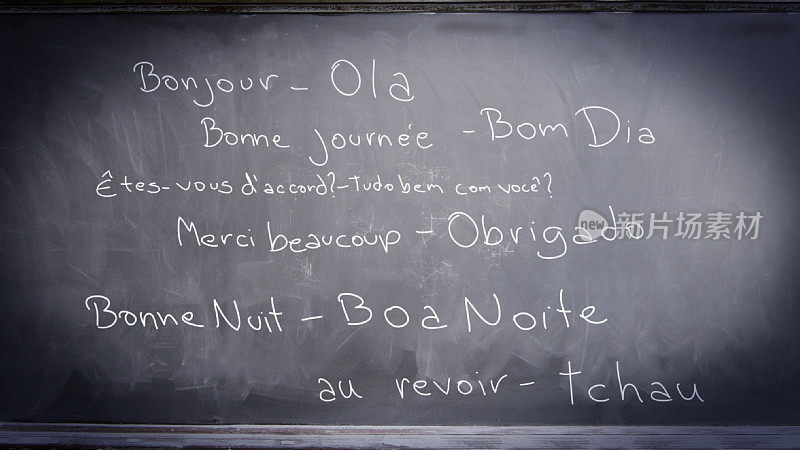 Bonjour - Ola
Bonne journée - Bom Dia
Êtes-vous d'accord? - Tudo bem com você?
Merci beaucoup - Obrigado
new 新片场素材
Bonne Nuit - Boa Noite
au revoir - tchau